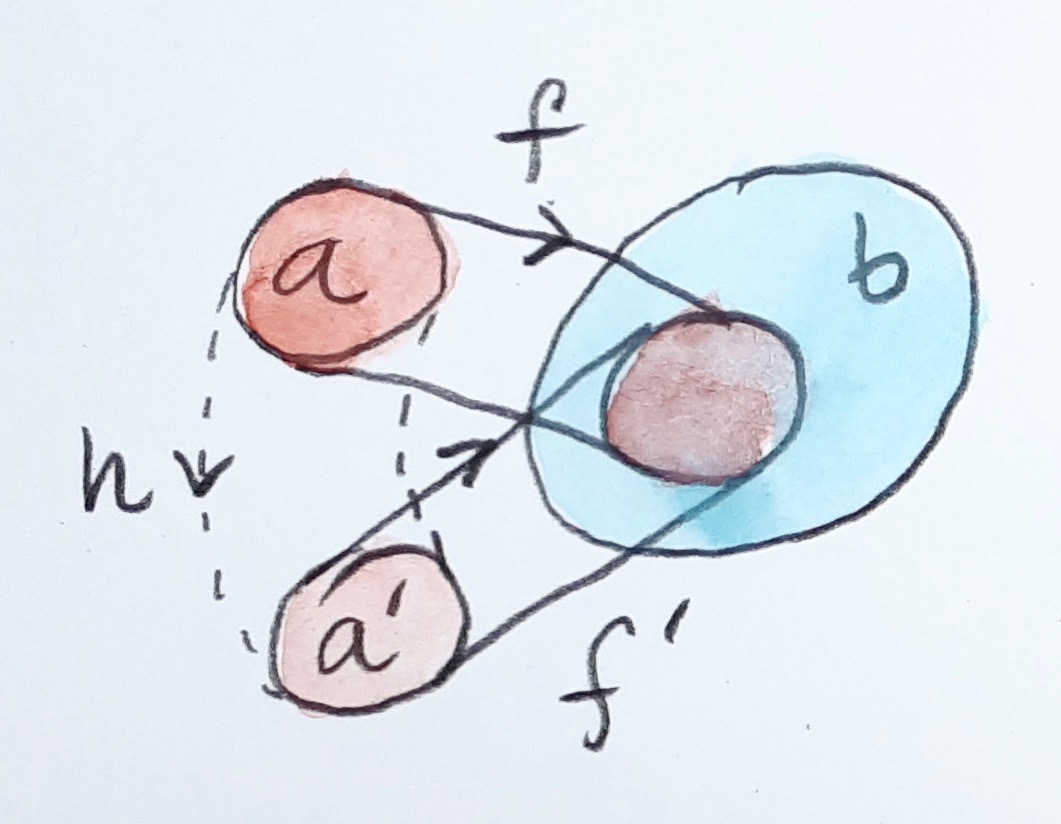 f
a
b
h
a'
f'